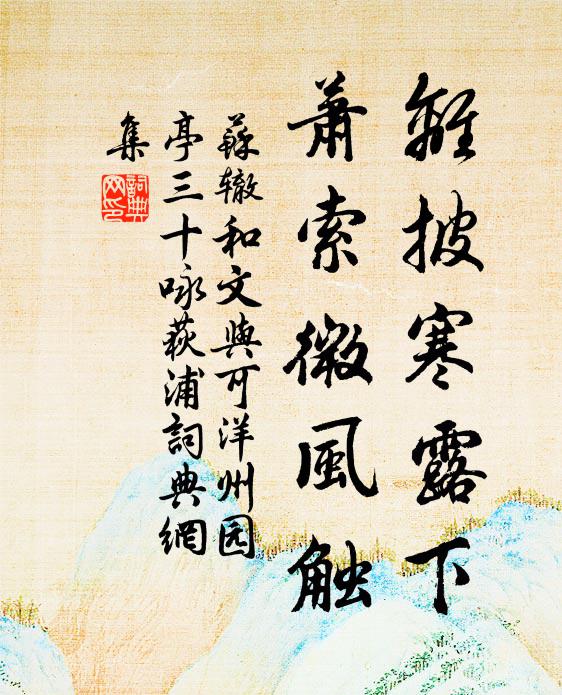 離披寒露下
萧索微風触
蘇辙和文與可洋州园
亭三十咏荻浦詞典網
集
詞典
网印